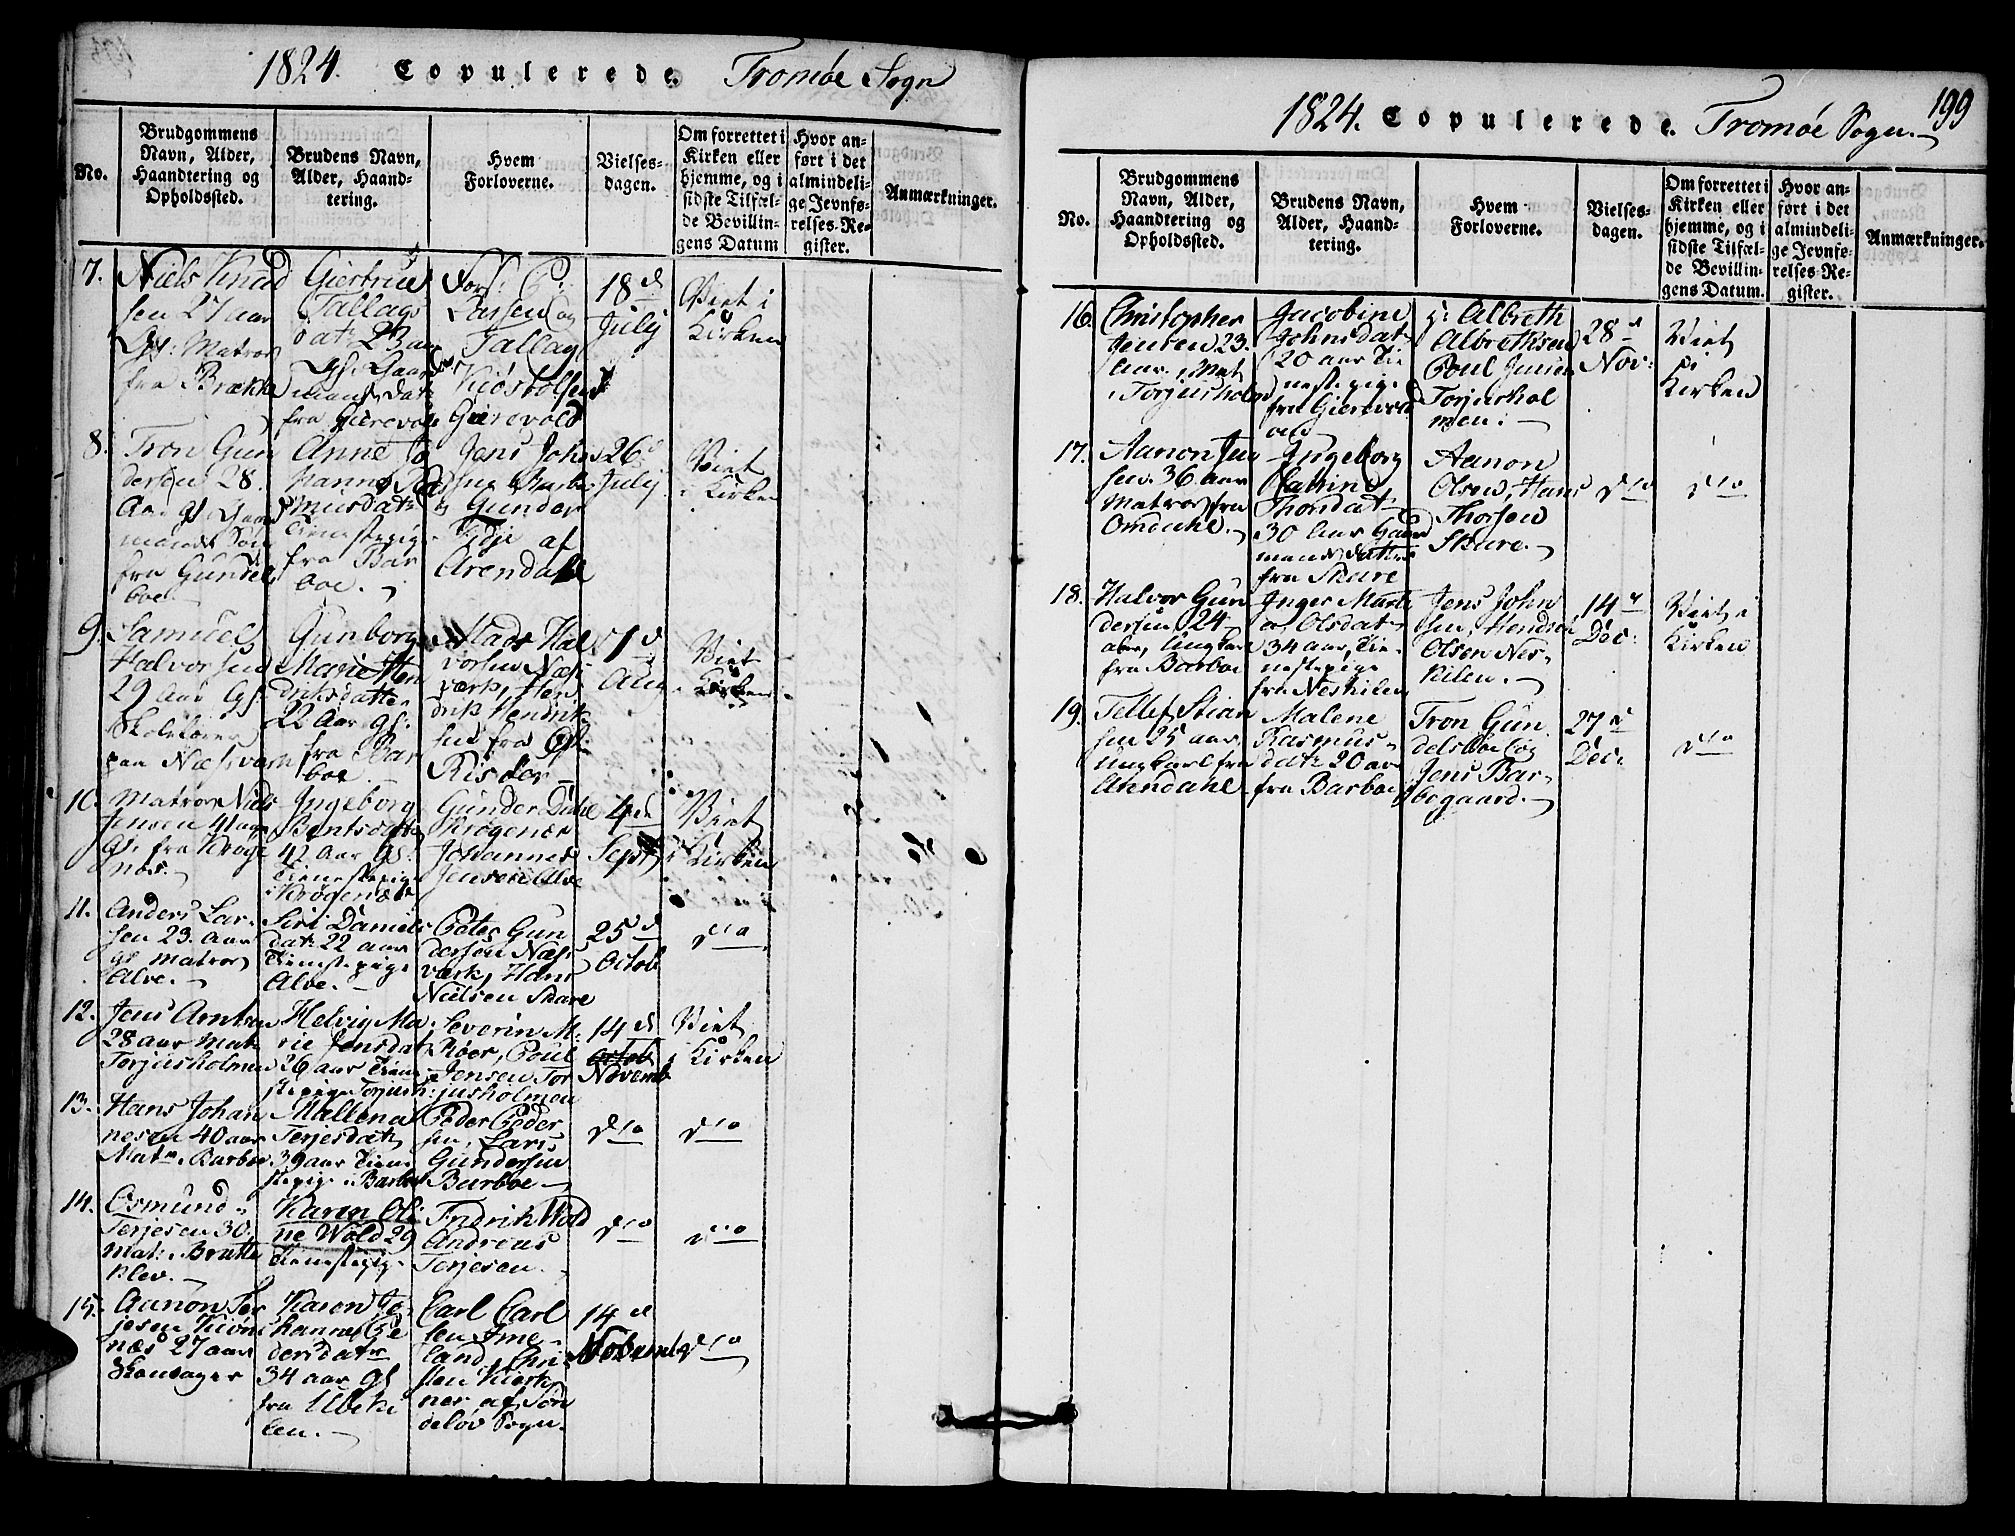 1824. Copulerede. Tromøe Sogn
No.
Brudgommens
Navn, Alder,
Haandtering og
Opholdssted.
Brudens Navn,
Alder, Haand-
tering.
Hvem
Forloverne.
Vielses-
dagen.
Om forrettet i
Kirken eller
hjemme, og i
sidste Tilfæl-
de Bevillin-
gens Datum
Hvor an-
ført i det
almindeli-
ge Jevnfø-
relses-Re-
gister.
Anmærkninger.
7.
Niels Knud
sen 27 aar
Matros
fra Brække
Giertrue
Tallags
dat: 23 aar
fra Gierevold
Lars: P:
Larsen og
Tallag
Kiøstolsen
Gierevold
18 d
July
Viet i
Kirken
8.
Tron Gun
dersen 28.
Aar gl. Gaard
mands Søn
fra Gundel
boe.
Anne Jo
hanne Ras
musdat:
Tienestepig
fra Bar
boe.
Jens John
sen Barbo
og Gunder
Tidje af
Arendahl
26 d
July
Viet
i Kirken
9.
Samuel
Halvorsen
29 Aar gl.
Skolelærer
paa Næsværn
Gunborg
Marie Hen
driksdatter
22 Aar gl:
fra Bar
boe.
Mads Hal
vorsen Næs
værk, Hen
drik Hendrik
sen fra Øst
Risøer
1 d
Aug
Viet
i Kirken
10.
Matros Niels
Jensen 41 aar
gl. fra Krøge
næs.
Ingeborg
Bentsdatter
42 Aar gl:
Tienestepige
i Krøgenæs
Gunder Dahl
Krøgenæs
Johannes
Jensen Alve
4 d
Sept
Viet
i Kirken
11.
Anders Lar-
sen 23. Aar
gl Matros
Alve.
Siri Daniels
dat: 22 aar
Tienestepige
Alve.
Peter Gun
dersen Næs
værk, Hans
Nielsen Skare
25 d
Octob
dto
12.
Jens Arntsen
28 aar Mat:
Torjusholmen
Helvig Ma
rie Jensdat
26 aar Tiene
stepige Torjush:
Severin M:
Kiøer, Poul
Jensen Tor
jusholmen
14 d
Octob
Novemb
Viet
i Kirken
13.
Hans Johan
nesen 40 aar
Mat. Barboe
Mallena
Terjesdat:
39 aar Tiene
stepige i Barboe
Peder Peder
sen, Lars
Gundersen
Barboe
dto
dto
14.
Osmund
Terjesen 30.
mat: Brutte
klev.
Karen Oli
ne Wold 29
Tienestepige
Fridrik Wold
Andreas
Terjesen.
dto
dto
15.
Aanon Ter
jesen Kiøn
næs 27 aar
Skovsager
Karen Jo
hanne Pe
dersdatr
34 aar gl
fra Ulveki
len.
Carl Carl
sen Fme
land, Chri
sten Kierk
ner af Søn
deløv Sogn.
14 d
Novemb
dto
1824. Copulerede. Tromøe Sogn. 199
No.
Brudgommens
Navn, Alder,
Haandtering og
Opholdssted.
Brudens Navn,
Alder, Haand-
tering.
Hvem
Forloverne.
Vielses-
dagen.
Om forrettet i
Kirken eller
hjemme, og i
sidste Tilfæl-
de Bevillin-
gens Datum.
Hvor an-
ført i det
almindeli-
ge Jevnfø-
relses-Re-
gister.
Anmærkninger.
16.
Christopher
Jensen 23.
Aar. Mat
i Torjusholm
Jacobine
Johnsdat
20 aar Tie
nestepige
fra Gierevold
Albreth
Albrethsen
Poul Jensen
Torjushol
men.
28 d
Nov:
Viet
i
Kirken
17.
Aanon Jen
sen. 36 aar
Matros fra
Omdahl.
Ingeborg
Catrine
Thorsdat
30 Aar Gaard
mands datter
fra Skare
Aanon
Olsen, Hans
Thorsen
Skare.
dto
dto
18.
Halvor Gun
dersen 24
aar, Ungkarl
fra Barboe
Inger Marte
a Olsdat
34 aar, Tie
nestepige
fra Neskilen
Jens John
sen, Hendrik
Olsen Nes-
kilen.
14 d
Dec:
Viet i
Kirken
19.
Tellef Stian
sen 25 aar
ungkarl fra
Arendahl
Malene
Rasmus-
dat: 20 aar
fra Barboe
Tron Gun
delsboe og
Jens Bar-
begaard.
27 d
Dec:
dto